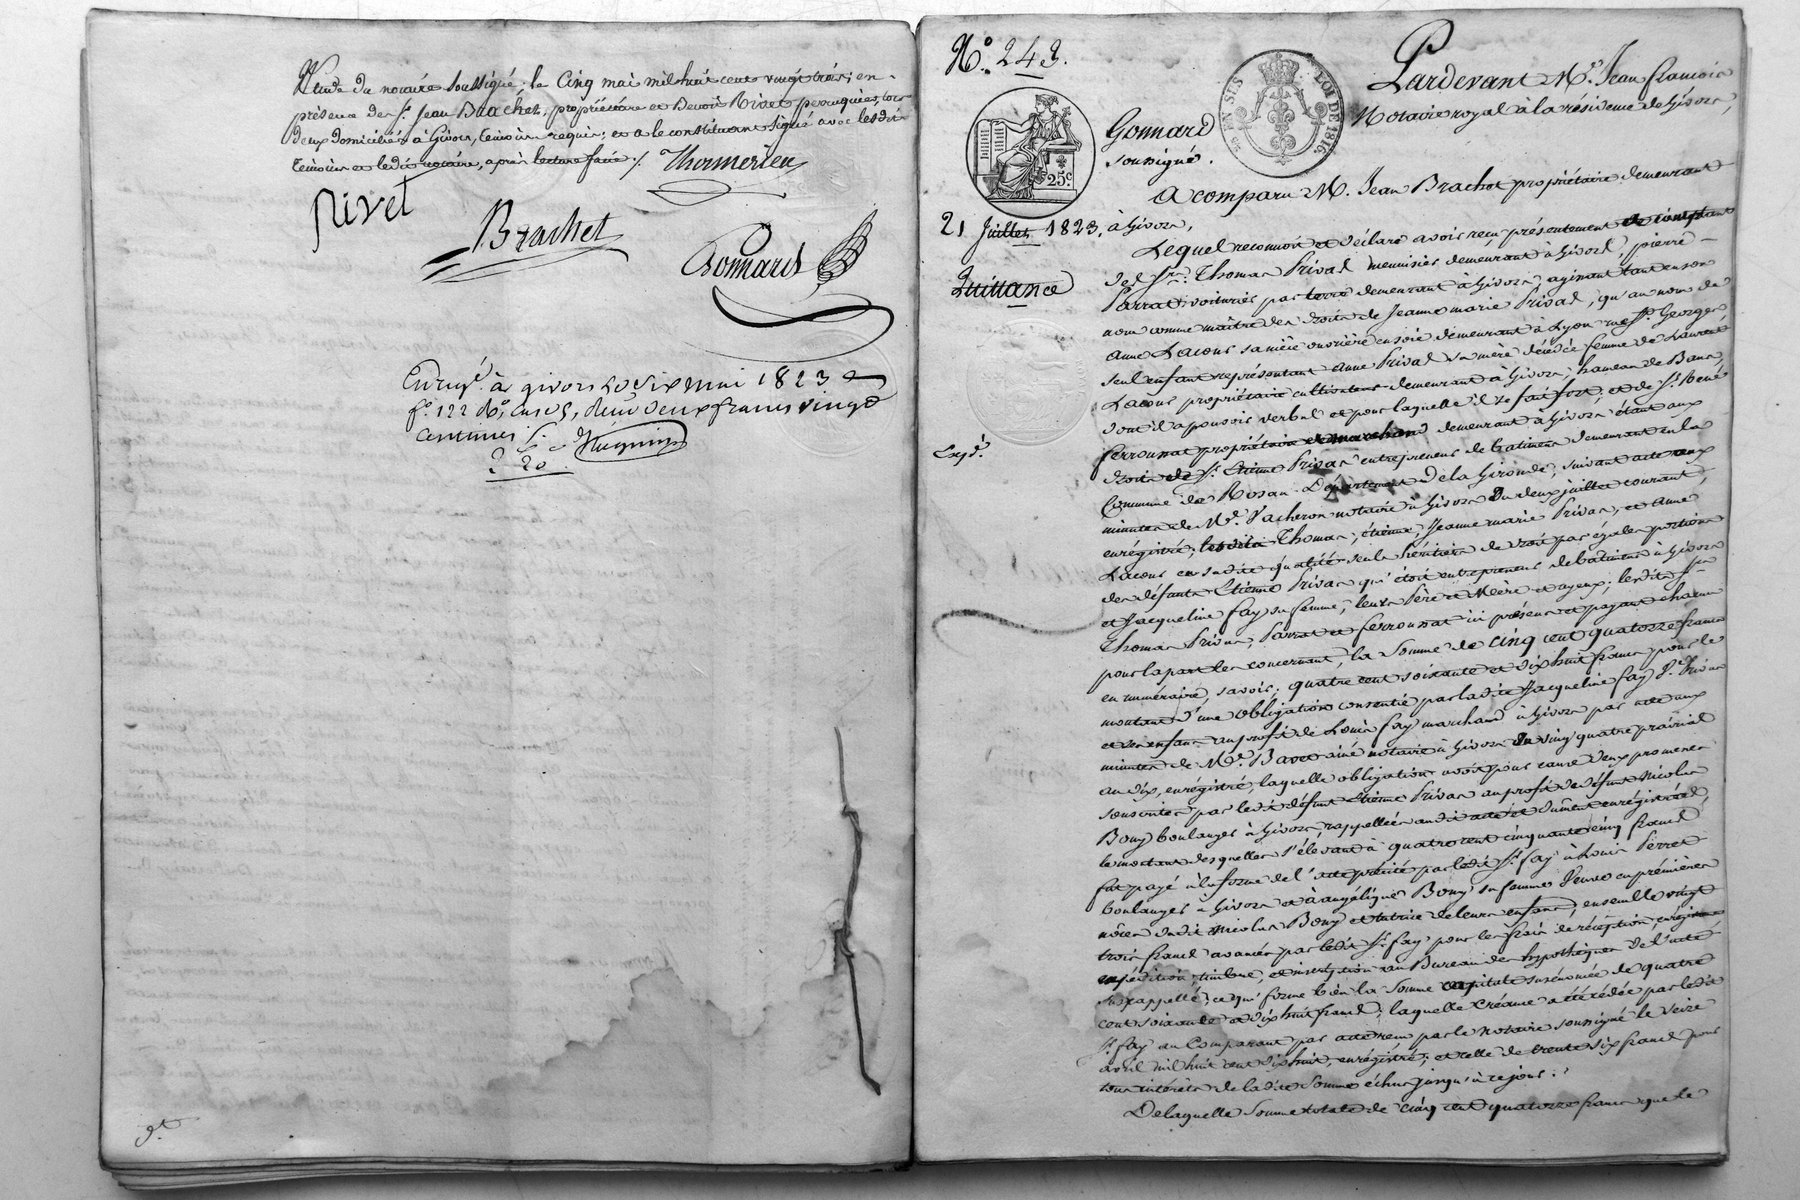 Etude du notaire soussigné, le Cinq mai mil huit cent vingt trois; en
présence des Srs. Jean Brachet, propriétaire et Benoit Rivet perruquier, tous
deux domiciliés à Givors, témoins requis; et a le constituant signé avec lesdits
témoins et ledit notaire, après lecture faite ./. Thomerieu
Rivet
Brachet
Gonnard
Enregé. à givors Le Six mai 1823
fo. 122 Ro. Case 5, reçu deux francs vingt
centimes
2 20
No. 243.
EN SUS LOI DE 1816.
25c
Pardevant Me. Jean francois
Gonnard Notaire royal à la résidence de Givors,
soussigné.
A comparu M. Jean Brachet propriétaire demeurant
21 Juillet 1823. à Givors,
Quittance
Lequel reconnoit et déclare avoir reçu présentement et comptant
des Srs. Thomas Privas menuisier demeurant à Givors, pierre
Parrat voiturier par terre demeurant à Givors, agissant tant en son
nom comme maître des droits de Jeanne marie Privas, qu'au nom de
Anne Lacour sa nièce ouvrière en soie demeurant à Lyon rue St. Georges
seul enfant représentant Anne Privas sa mère décédée femme de Laurent
Lacour propriétaire cultivateur demeurant à Givors, hameau de Bans,
dont il a pouvoir verbal et pour laquelle il se fait fort; et de Sr. René
Expé.
ferrounat propriétaire et marchand demeurant à Givors étant aux
droits de Sr. Etienne Privas entrepreneur de batimens demeurant en la
Commune de Rosan Département de la Gironde, suivant acte aux
minutes de Me. Vacheron notaire à Givors du deux juillet courant,
enrégistré; lesdits Thomas, étienne, Jeanne marie Privas, et Anne
Lacour en sadite qualité seuls héritiers de droit par égales portions
des défunts Etienne Privas qui étoit entrepreneur de batimens à Givors
et Jacqueline fay sa femme, leurs Père et Mère et ayeux; lesdits Srs.
Thomas Privas, Parrat et ferrounat ici présens et payant chacun
pour la part les concernant, la Somme de cinq cent quatorze francs
en numéraire, savoir; quatre cent soixante et dix huit francs pour le
montant d'une obligation consentie par ladite Jacqueline fay Ve. Privas
et ses enfans au profit de Louis fay marchand à Givors par acte aux
minutes de Me. ainé notaire à Givors du vingt quatre prairial
an dix, enrégistré, laquelle obligation avoit pour cause deux promesses
souscrites par ledit défunt Etienne Privas au profit de défunt Nicolas
Bony boulanger à Givors, rappellées audit acte et dûment enrégistrées,
le montant desquelles s'élevant à quatre cent cinquante cinq francs
fut payé à la forme de l'acte précité par ledit Sr. fay à Louis Perret
boulanger à Givors et à angélique Bony sa femme Veuve en prémières
nôces dudit Nicolas Bony et tutrice de leurs enfans, ensemble vingt
trois francs avancés par ledit Sr. fay pour les frais de réception, enrégistrement
expédition, timbre, et inscription au Bureau des hypothèques de l'acte
susrappellé; ce qui forme bien la Somme capitale susénoncée de quatre
cent soixante et dix huit francs; laquelle Créance a été cédée par ledit
Sr. fay au Comparant par acte reçu par le notaire soussigné le seize
avril mil huit cent dix huit, enrégistré; et celle de trente six francs pour
tous intérêts de ladite Somme échus jusqu'à ce jour.
De laquelle Somme totale de cinq cent quatorze francs que le